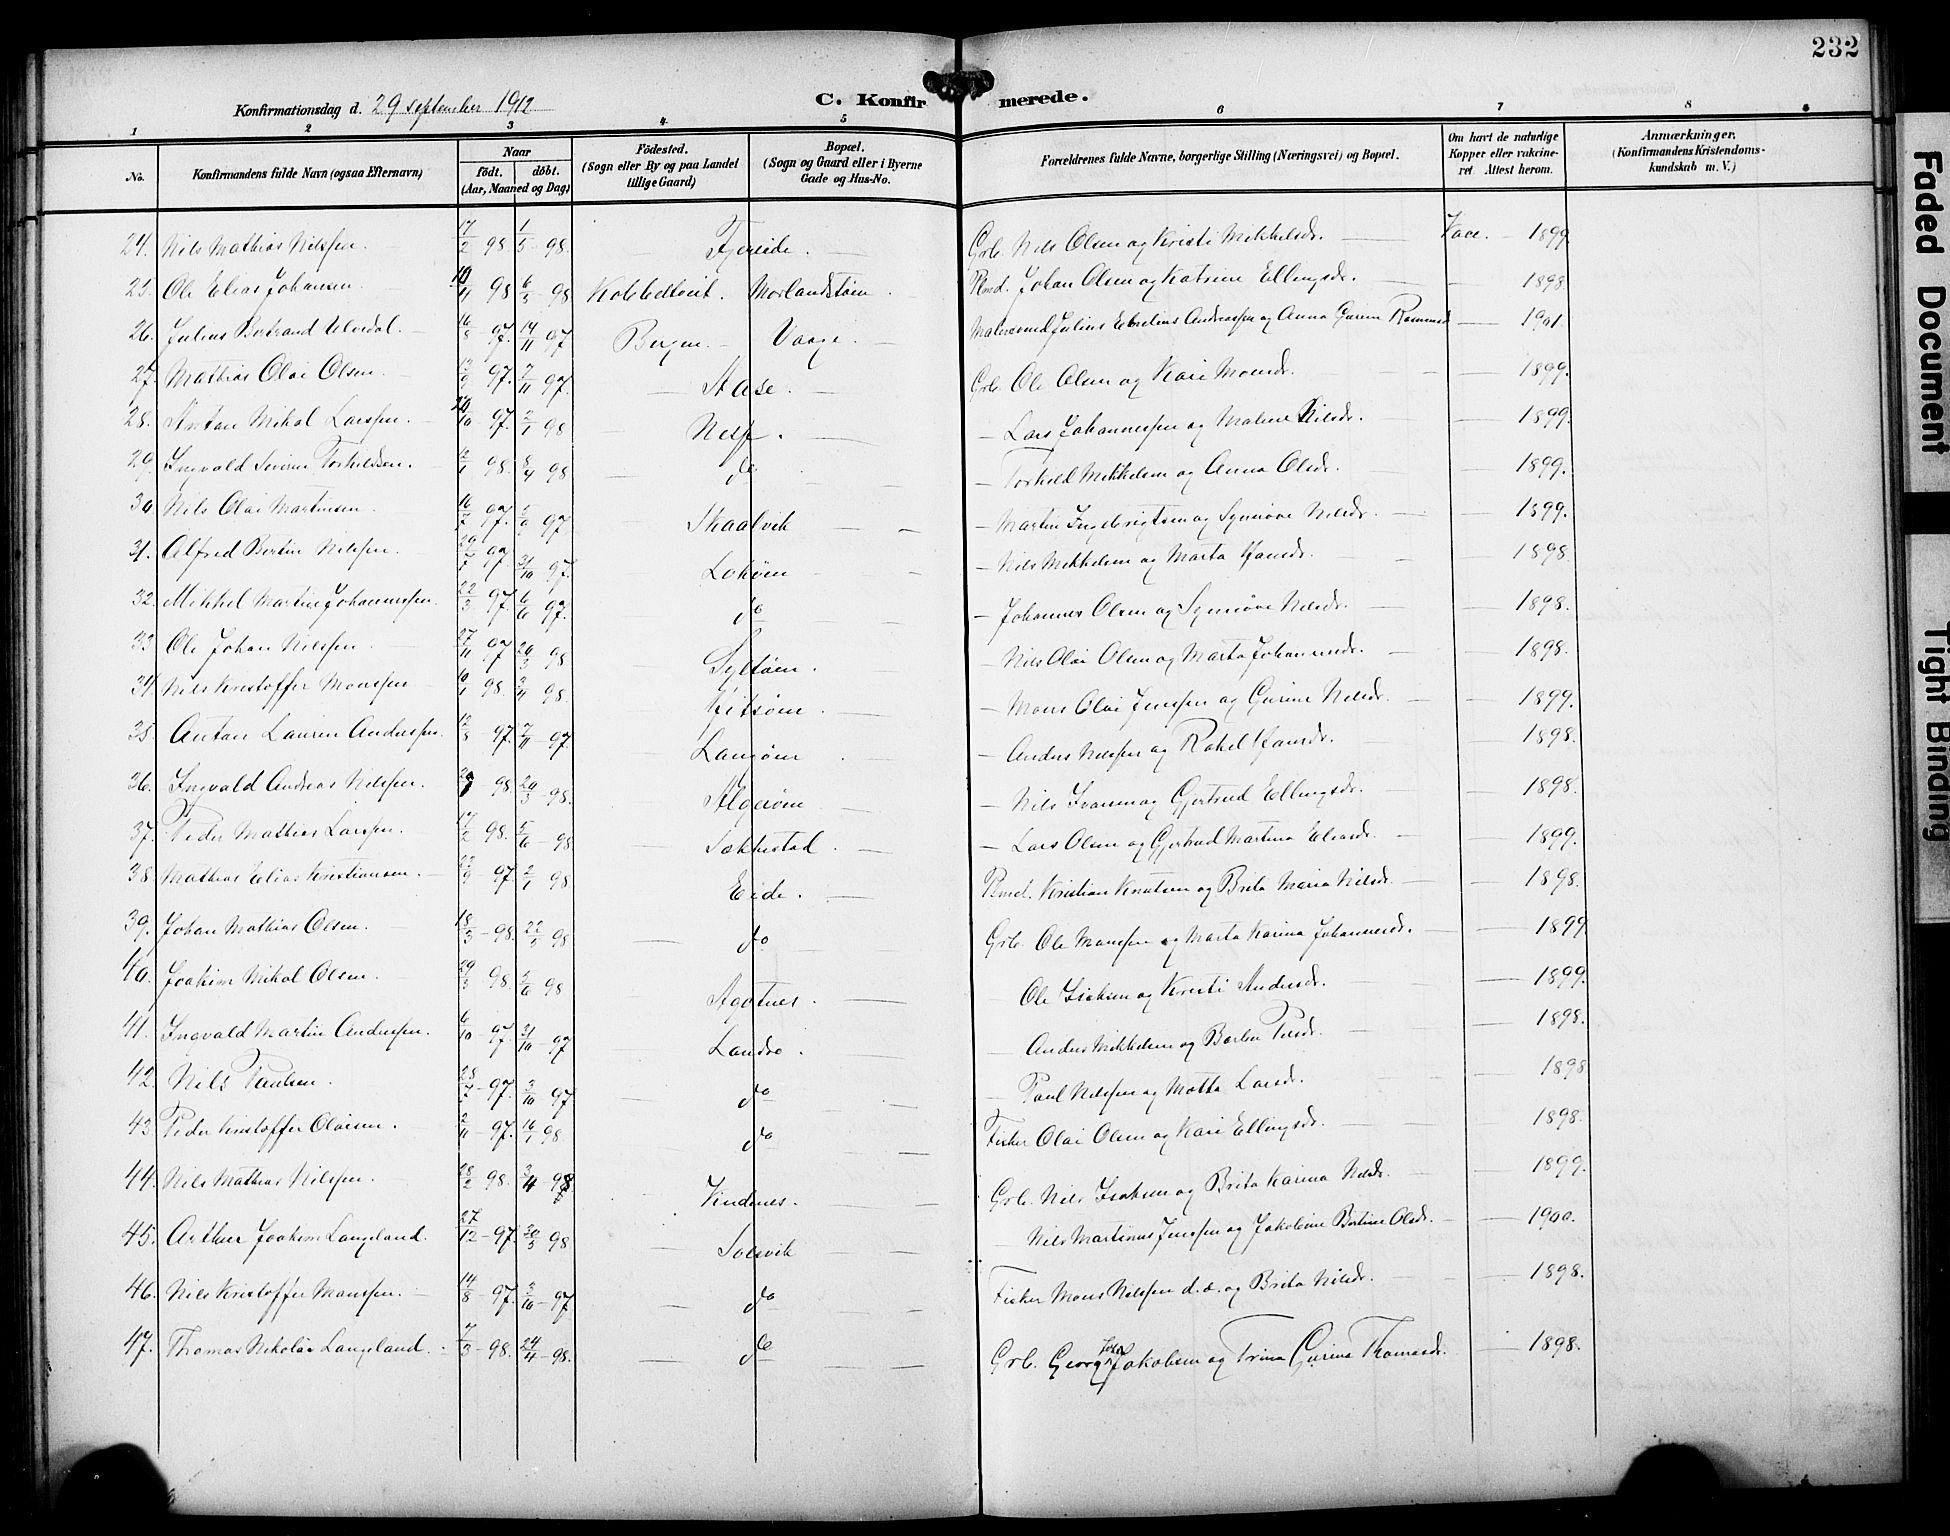 232
Konfirmationsdag d. 29 september 1912
C. Konfirmerede.
1 2 3 4. 5 6 7 8
No.
Konfirmandens fulde Navn (ogsaa Efternavn)
Naar
födt. döbt.
(Aar, Maaned og Dag)
Födested.
(Sogn eller By og paa Landet
tillige Gaard)
Bopæl.
(Sogn og Gaard eller i Byerne
Gade og Hus-No.
Forældrenes fulde Navne, borgerlige Stilling (Næringsvei) og Bopæl.
Om havt de naturlige
Kopper eller vakcine-
ret Attest herom.
Anmærkninger.
(Konfirmandens Kristendoms-
kundskab m. V.)
24. Nils Mathias Nilssen. 17/2 98 1/5 98. Fjereide. Grb. Nils Olsen og Kristi Mikkelsdr. Vacc. 1899
25. Ole Elias Johansen. 98 6/5 98 Kobbeltveit. Morlandstøen Plmd. Johan Olsen og Katrine Ellingsdr. 1898
26. Julius Bertrand Ulvedal. 16/8 97. 14/11 97 Bergen. Vaage. Malersvend Julius Andreassen og Anna Gurine 1901.
27. Mathias Olai Olsen. 97. 7/11 97. Aase. Grb. Ole Olsen og Kari Monsdr. 1899.
28. Anton Mikal Larssen. 97. 2/1 98 Nesse. Lars Johannessen og Malene Nilsdr. 1899.
29. Ingvald Severin Torkildsen. 98. 8/4 98 do Torkild Mikkelsen og Anna Olsdr. 1899.
30 Nils Olai Martinsen. 97. 97 Skaalvik Martin Ingebrigtsen og Synnøve Nilsdr. 1899.
31. Alfred Bertin Nilssen. 97. 31/10 97. Lokøen Nils Mikkelsen og Marta Hansdr. 1898.
32. Mikkel Martin Johannessen. 22/3 97 6/6 97. do Johannes Olsen og Synnøve Nilsdr. 1898.
33 Ole Johan Nilssen. 27/11 97 20/3 98 Syltøen. Nils Olai Olsen og Marta Johannesdr. 1898.
34. Nils Kristoffer Monssen 10/1 98. 3/4 98. Mons Olai Jenssen og Gurine Nilsdr. 1899.
35. Anton Laurin Anderssen. 97. 7/11 97. Langøen Anders Nilssen og Rakel Hansdr. 1898.
36. Ingvald Andreas Nilssen. 98 20/3 98. Algerøen Nils Ivarsen og Gjertrud Ellingsdr. 1898.
37. Peder Mathias Larssen. 17/2 98. 5/6 98 Sekkestad. Lars Olsen og Gjertrud Martina Eliasdr. 1899.
38. Mathias Elias Kristiansen. 22/9 97 2/1 98 Eide. Plmd. Kristian Knutsen og Brita Maria Nilsdr. 1898.
39. Johan Mathias Olsen. 18/3 98. 22/5 98 do Grb. Ole Monssen og Marta Karina Johannesdr. 1899
40. Joakim Mikal Olsen. 29/3 98. 5/6 98 Agotnes. Ole Isaksen og Kristi Andersdr. 1899.
41. Ingvald Martin Anderssen. 6/10 97. 31/10 97 Landro. Anders Mikkelsen og Barbra Persdr. 1898.
42. Nils Paulsen. 97. 3/10 97 do Paul Nilssen og Marta Larsdr. 1898
43. Peder Kristoffer Olaisen. 2/11 97. 16/1 98 do Fisker Olai Olsen og Kari Ellingsdr. 1898.
44. Nils Mathias Nilssen. 28/2 98. 3/4 98 Vindenes. Grb. Nils Isaksen og Brita Karina Nilsdr. 1899.
45. Arthur Joakim Langeland. 27/12 97. 98 Solsvik Nils Martinus Jenssen og Jakobine Bertine Olsdr. 1900.
46. Nils Kristoffer Monssen. 14/8 97. 3/10 97 do Fisker Mons Nilssen d. æ. og Brita Nilsdr. 1898.
47. Thomas Nikolai Langeland. 7/3 98. 24/4 98. do Grb. Georg Jakobsen og Trina Gurina Thomasdr. 1898.
Faded Document
Tight Binding